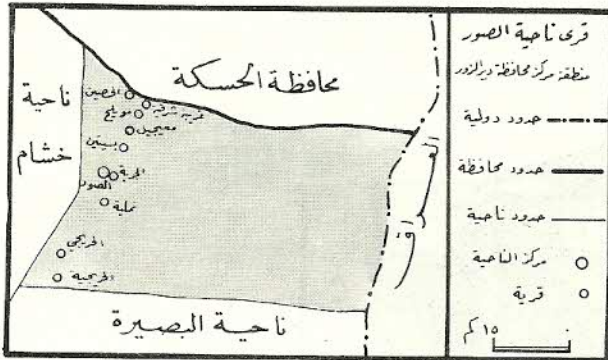 قرى ناحية الصور
منطقة مركز محافظة دير الزور
حدود دولية
حدود محافظة
حدود ناحية
مركز الناحية
قرية
١٥ كم ٠
محافظة الحسكة
ناحية خشام
العراق
ناحية البصيرة
الحصين
غريبه شرقية
مويلح
معيجيل
بسيتين
الجربة
الصور
نملية
الحريجي
الحريجية